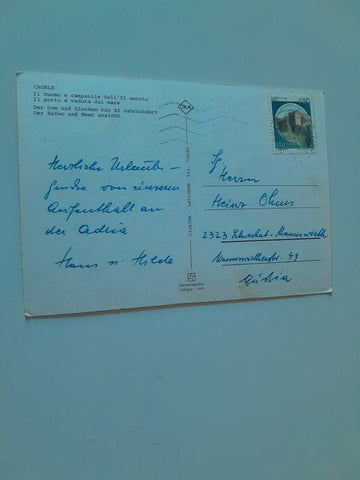 CAORLE
Il Duomo e campanile dell'XI secolo
Il porto e veduta dal mare
Der Dom und Glocken von XI Jahrhundert
Der Hafen und Meer ansicht
Herzliche Urlaubs-
grüße von unserem
Aufenthalt an
der Adria
Hans u. Hilde
Herrn
Heinz
2323 Schwechat-Mannswörth
Mannswörtherstr. 49
Austria